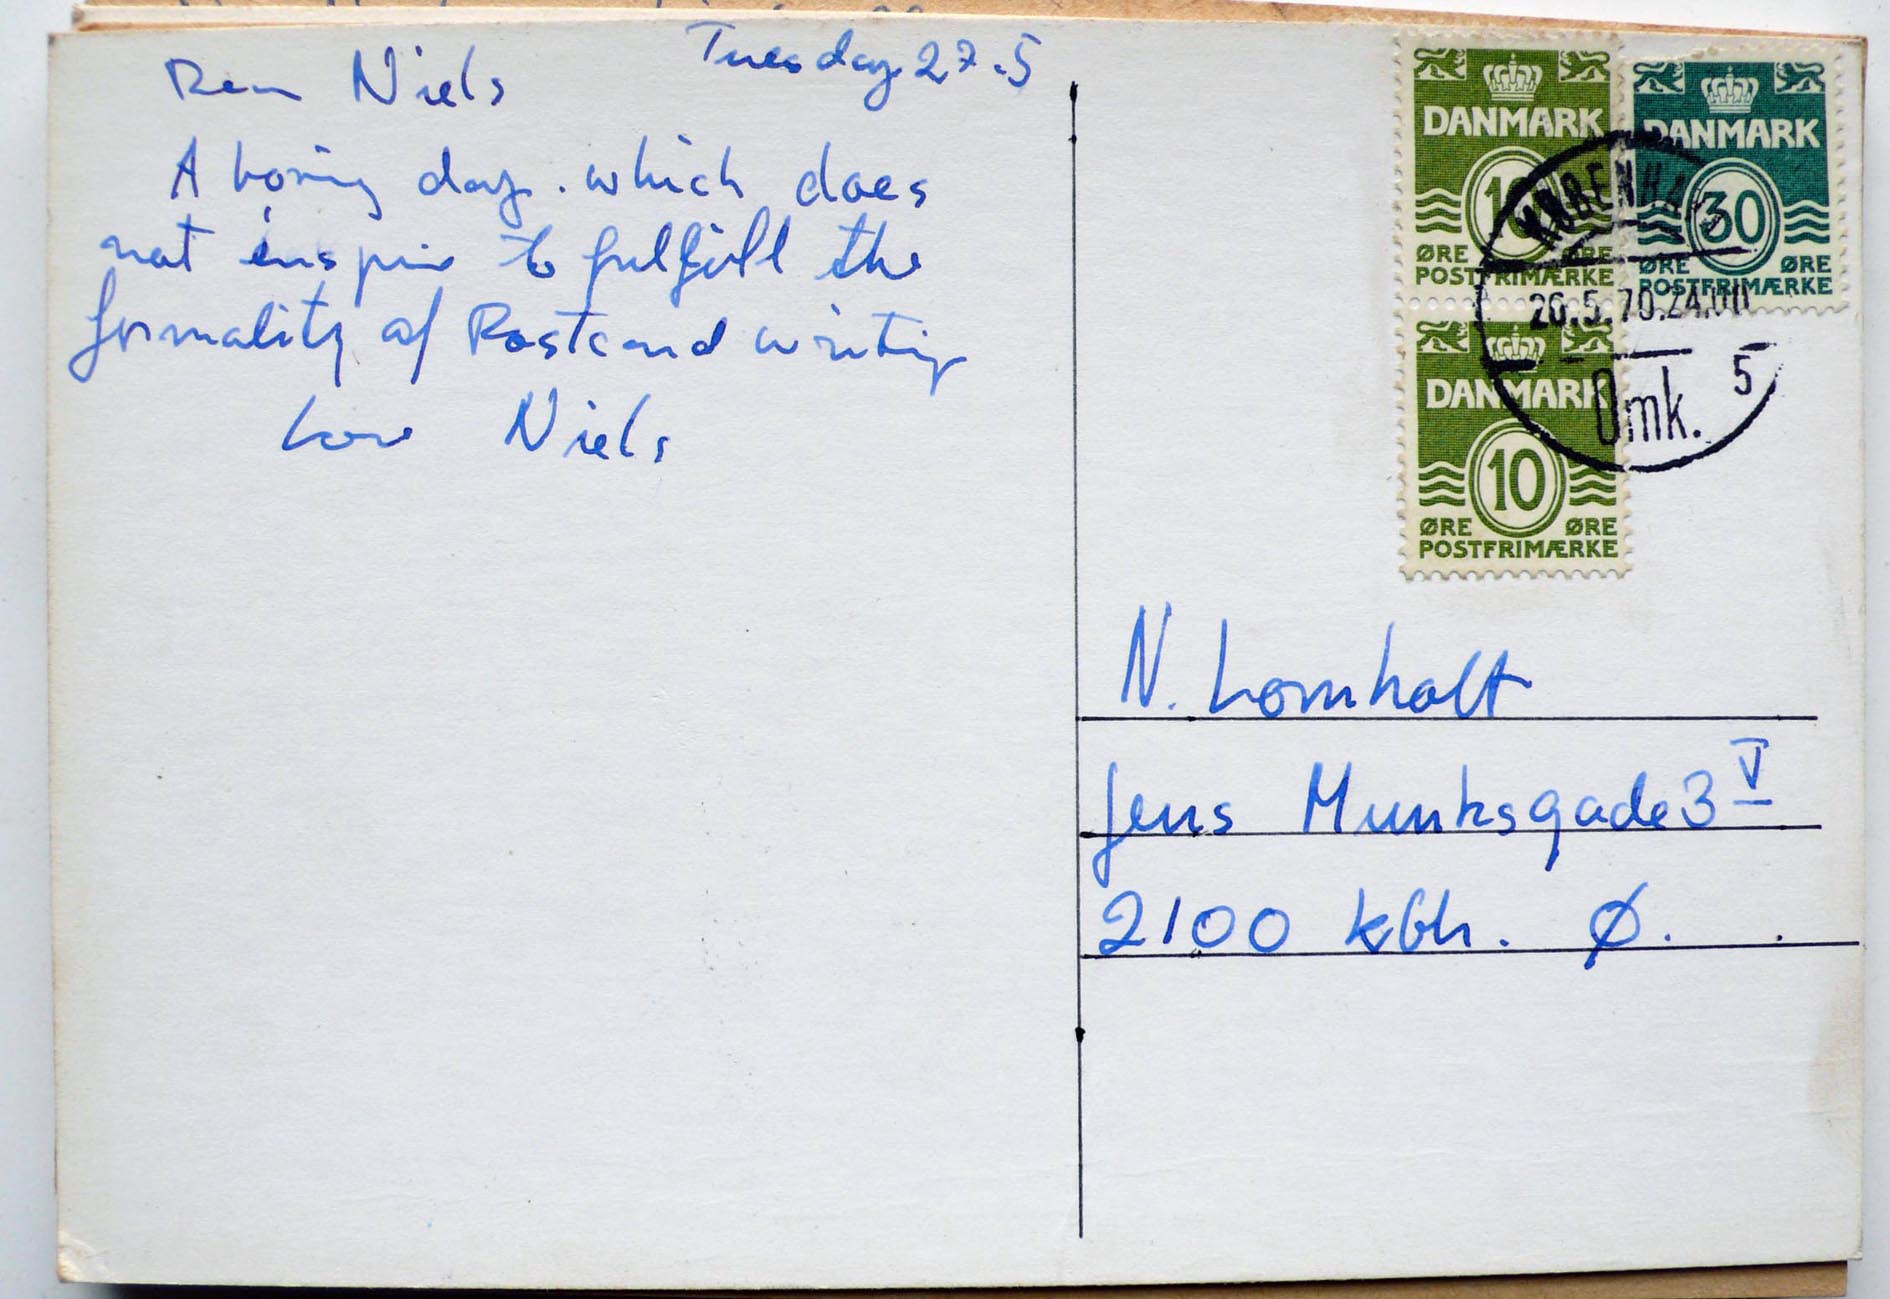 Tuesday 27.5
Dear Niels
A boring day. which does
not inspire to fulfill the
formality of Postcard writing
Love Niels
DANMARK
10
ØRE ØRE
POSTFRIMÆRKE
DANMARK
30
ØRE ØRE
POSTFRIMÆRKE
DANMARK
10
ØRE ØRE
POSTFRIMÆRKE
KØBENHAVN
26.5.70.24.00
Omk. 5
N. Lomholt
Jens Munksgade 3 V
2100 Kbh. Ø.